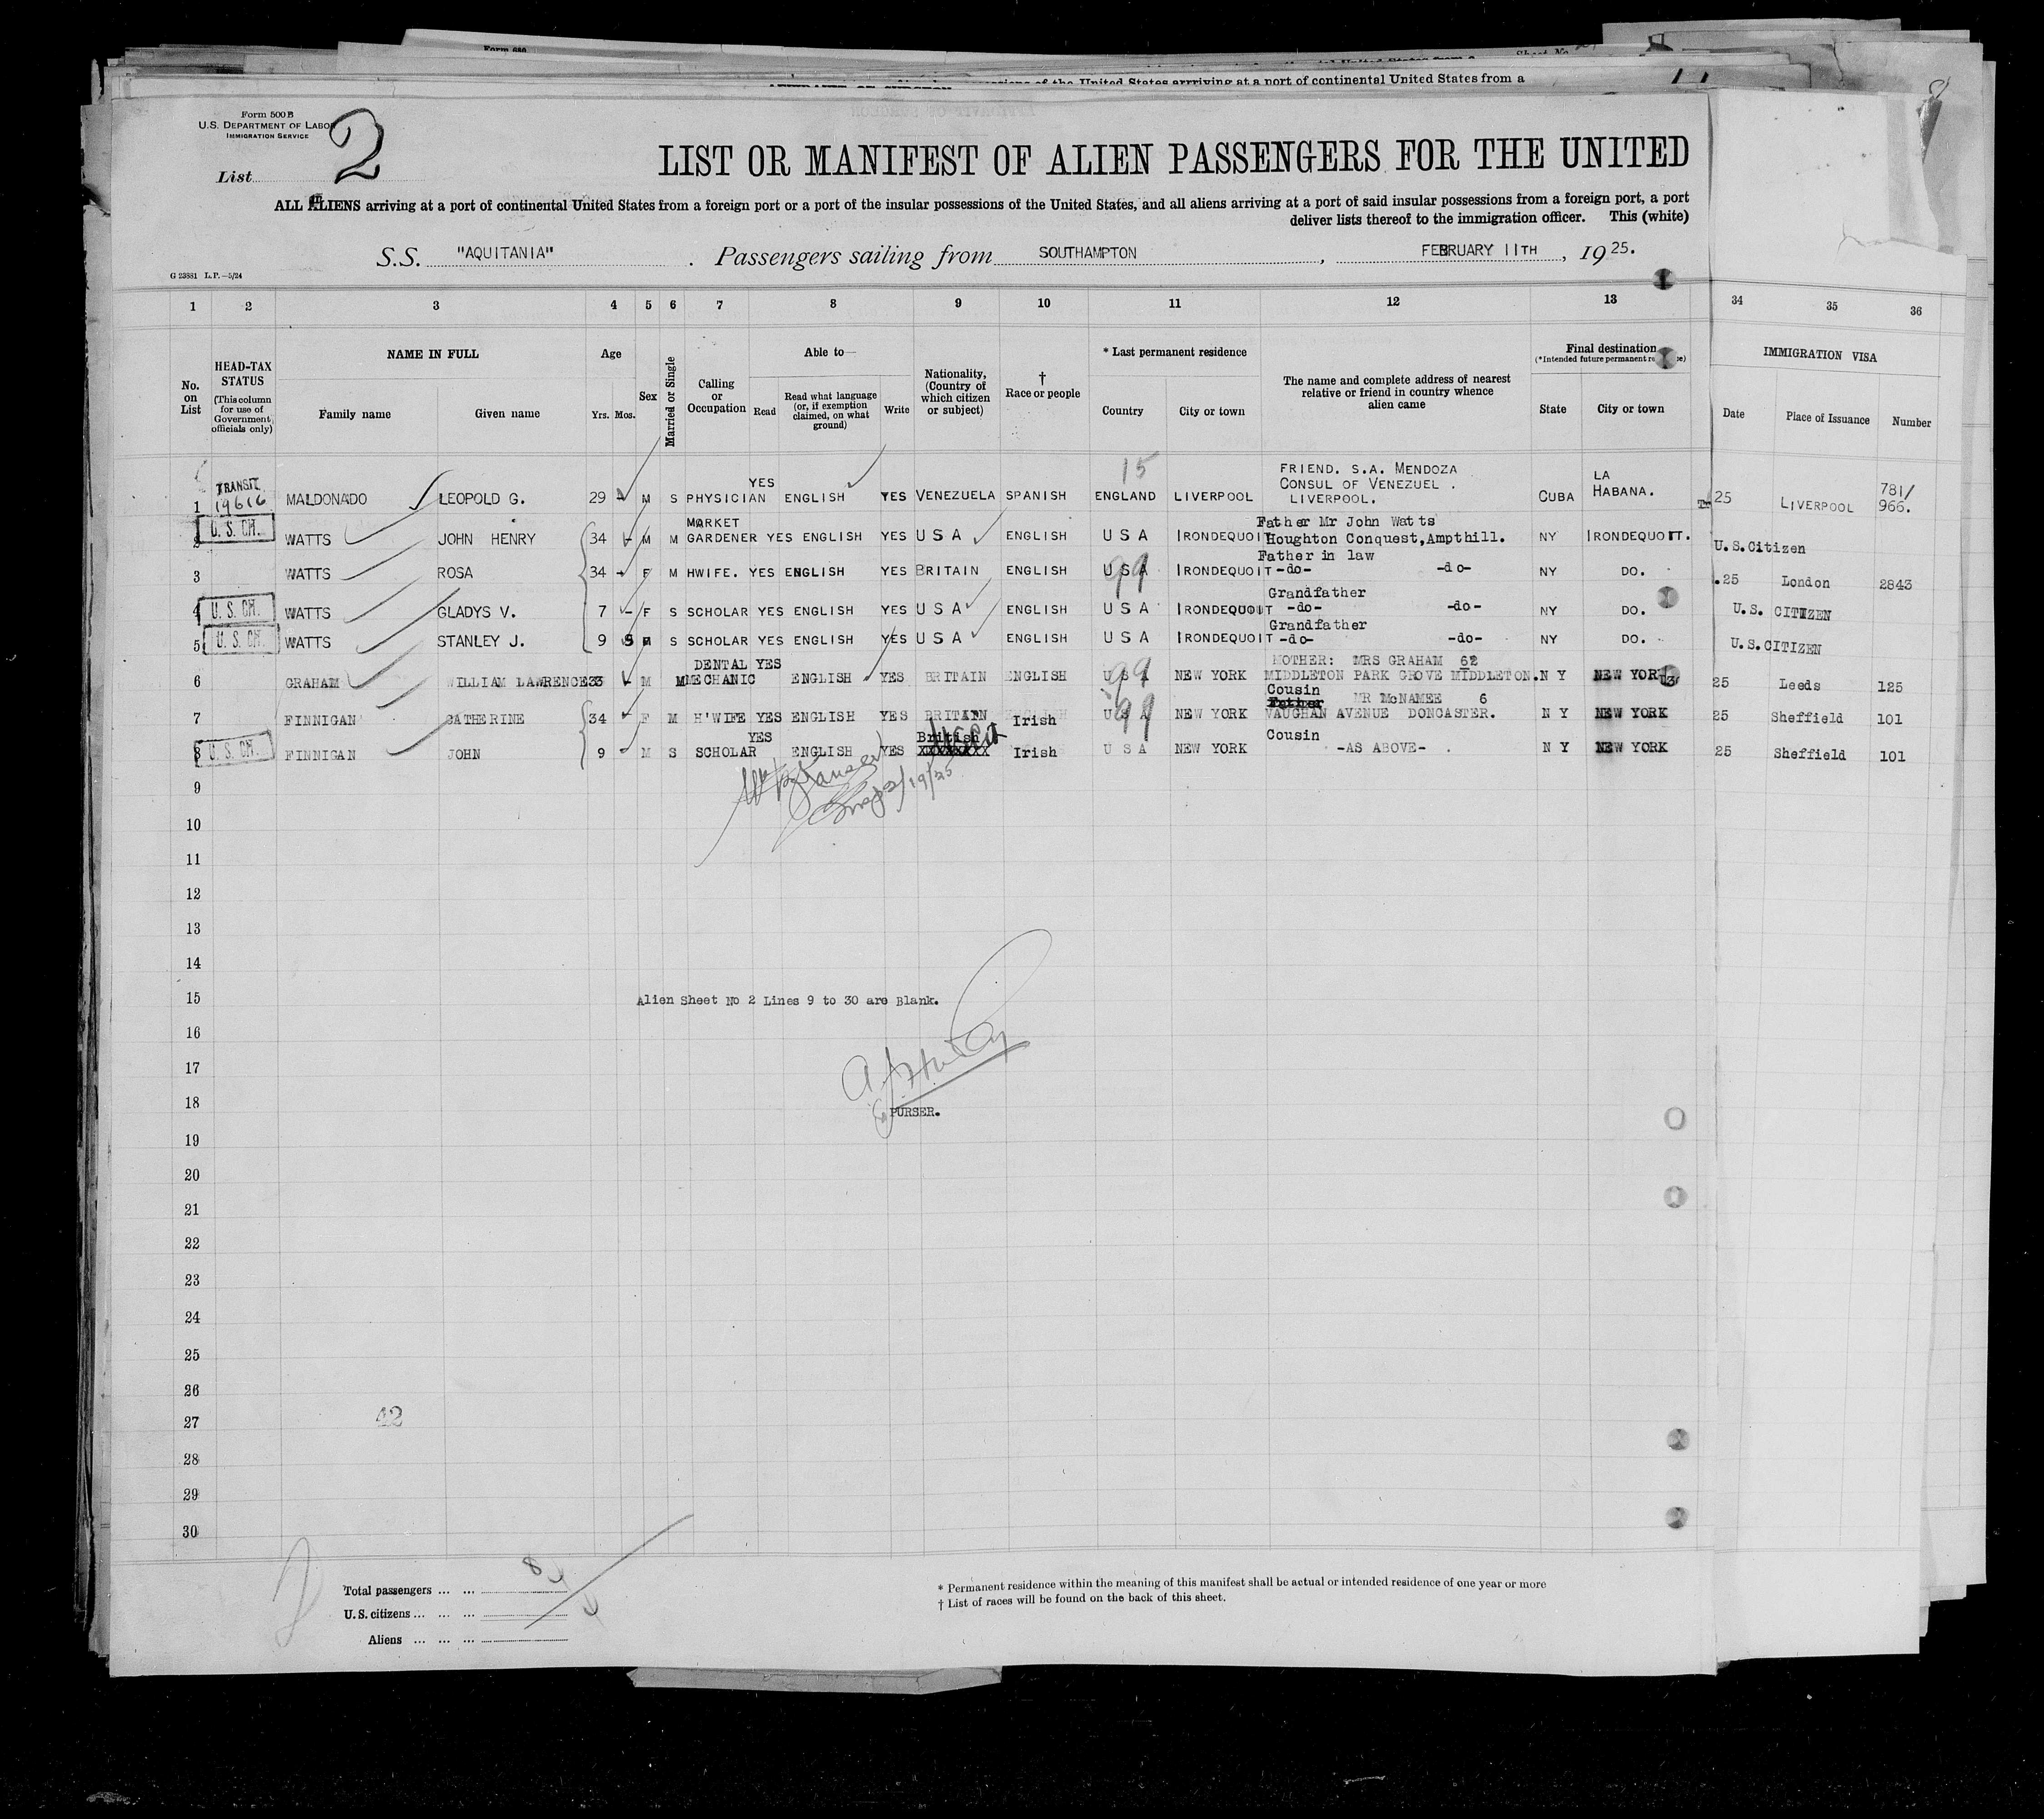 Form 500 B
U.S. DEPARTMENT OF LABOR
IMMIGRATION SERVICE
List 2
LIST OR MANIFEST OF ALIEN PASSENGERS FOR THE UNITED
ALL ALIENS arriving at a port of continental United States from a foreign port or a port of the insular possessions of the United States, and all aliens arriving at a port of said insular possessions from a foreign port, a port
deliver lists thereof to the immigration officer. This (white)
S.S. "AQUITANIA" . Passengers sailing from SOUTHAMPTON , FEBRUARY 11TH , 1925.
G 23881 L.P.—5/24
1 2 3 4 5 6 7 8 9 10 11 12 13 34 35 36
No. on List
HEAD-TAX STATUS (This column for use of Government officials only)
NAME IN FULL
Family name Given name
Age
Yrs. Mos.
Sex
Married or Single
Calling or Occupation
Able to—
Read Read what language (or, if exemption claimed, on what ground) Write
Nationality, (Country of which citizen or subject)
† Race or people
* Last permanent residence
Country City or town
The name and complete address of nearest relative or friend in country whence alien came
Final destination
(*Intended future permanent
State City or town
IMMIGRATION VISA
Date Place of Issuance Number
1 TRANSIT 19616 MALDONADO LEOPOLD G. 29 M S PHYSICIAN YES ENGLISH YES VENEZUELA SPANISH 15 ENGLAND LIVERPOOL FRIEND. S.A. MENDOZA CONSUL OF VENEZUEL . LIVERPOOL. CUBA LA HABANA. 25 LIVERPOOL 781/966.
2 U.S. CH. WATTS JOHN HENRY 34 M M MARKET GARDENER YES ENGLISH YES U S A ENGLISH U S A IRONDEQUOIT Father Mr John Watts Houghton Conquest,Ampthill. NY IRONDEQUOIT. U.S.Citizen
3 WATTS ROSA 34 F M HWIFE. YES ENGLISH YES BRITAIN ENGLISH U S A 99 IRONDEQUOIT Father in law -do- -do- NY DO. .25 London 2843
4 U.S. CH. WATTS GLADYS V. 7 F S SCHOLAR YES ENGLISH YES U S A ENGLISH U S A IRONDEQUOIT Grandfather -do- -do- NY DO. U.S. CITIZEN
5 U.S. CH. WATTS STANLEY J. 9 S SCHOLAR YES ENGLISH YES U S A ENGLISH U S A IRONDEQUOIT Grandfather -do- -do- NY DO. U.S.CITIZEN
6 GRAHAM WILLIAM LAWRENCE 33 M M DENTAL MECHANIC YES ENGLISH YES BRITAIN ENGLISH U S A 99 NEW YORK MOTHER: MRS GRAHAM 62 MIDDLETON PARK GROVE MIDDLETON. N Y NEW YORK 25 Leeds 125
7 FINNIGAN CATHERINE 34 F M H'WIFE YES ENGLISH YES BRITAIN Irish U S A 99 NEW YORK Cousin Father MR McNAMEE 6 VAUGHAN AVENUE DONCASTER. N Y NEW YORK 25 Sheffield 101
8 U.S. CH. FINNIGAN JOHN 9 M S SCHOLAR YES ENGLISH YES British XXXXXXXX Irish U S A NEW YORK Cousin -AS ABOVE- . N Y NEW YORK 25 Sheffield 101
9
10
11
12
13
14
15 Alien Sheet No 2 Lines 9 to 30 are Blank.
16
17
18 PURSER.
19
20
21
22
23
24
25
26
27 42
28
29
30
Total passengers ... ... 8
U.S. citizens ... ... ...
Aliens ... ... ...
* Permanent residence within the meaning of this manifest shall be actual or intended residence of one year or more
† List of races will be found on the back of this sheet.